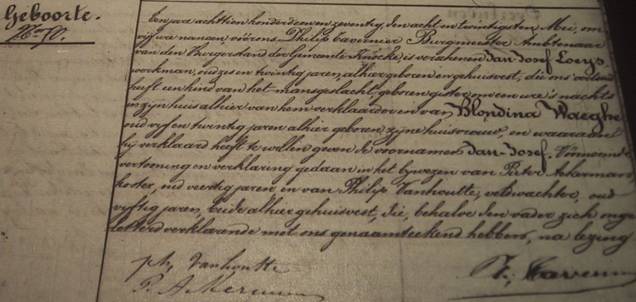 Geboorte.
Ten jare achttien honderd een en zeventig, den acht en twintigsten Mei, om
vyf ure namens, voor ons Philip Tavernier Burgmeester Ambtenaar
van den Burgerstand der Gemeente Knocke, is verschenen Jan Josef Loeys
werkman, oud zes en twintig jaren, alhier geboren en gehuisvest, die ons vertoond
heeft een kind van het mansgeslacht, geboren gister om een ure 's nachts
in zyn huis alhier van hem verklaarder en van Blondina Waeghe
oud vyf en twintig jaren alhier geboren, zyne huisvrouw, en waaraan
hy verklaard heeft te willen geven de voornamen Jan-Josef. Namens de
vertooning en verklaring gedaan in het bywezen van Pieter Ackerman
koster, oud veertig jaren, en van Philip Vanhoutte, veldwachter, oud
vyftig jaren, beide alhier gehuisvest, die, behalve den vader zich onge
letterd verklarende met ons genaamteekend hebben, na lezing
ph. Vanhoutte